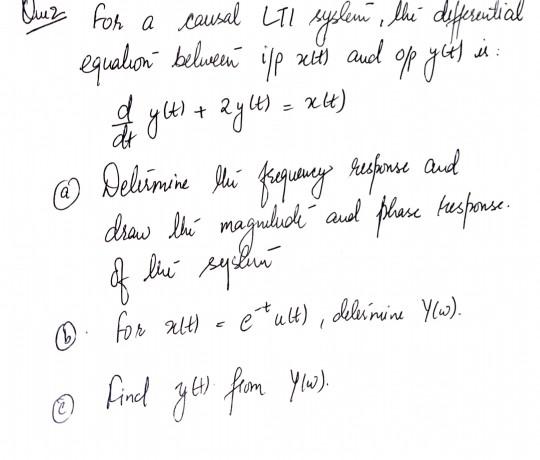 Que2 For a causal LTI system, the differential
equation between i/p x(t) and o/p y(t) is:
d/dt y(t) + 2y(t) = x(t)
(a) Determine the frequency response and
draw the magnitude and phase response.
of the system
(b). For x(t) = e^-t u(t), determine Y(ω).
(c) Find y(t) from Y(ω).